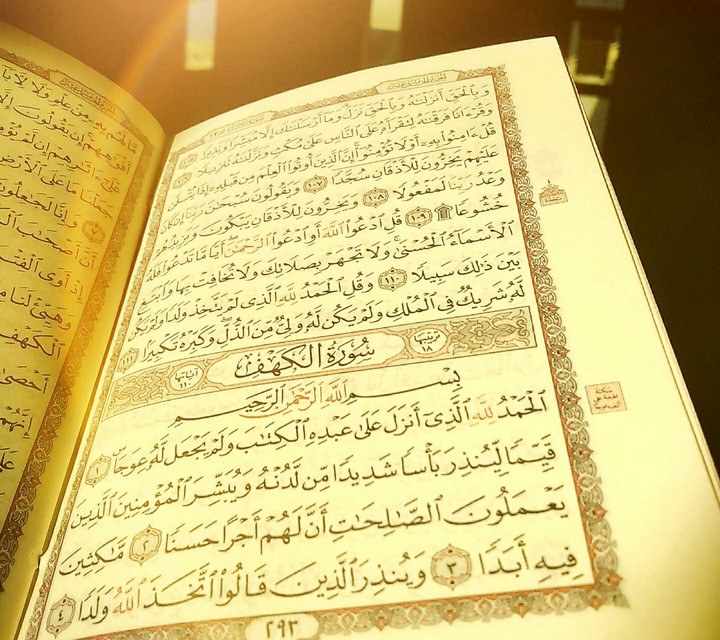 وَبِٱلْحَقِّ أَنزَلْنَٰهُ وَبِٱلْحَقِّ نَزَلَ وَمَآ أَرْسَلْنَٰكَ إِلَّا مُبَشِّرًا وَنَذِيرًا ١٠٥
وَقُرْءَانًا فَرَقْنَٰهُ لِتَقْرَأَهُۥ عَلَى ٱلنَّاسِ عَلَىٰ مُكْثٍ وَنَزَّلْنَٰهُ تَنزِيلًا ١٠٦
قُلْ ءَامِنُوا۟ بِهِۦٓ أَوْ لَا تُؤْمِنُوٓا۟ إِنَّ ٱلَّذِينَ أُوتُوا۟ ٱلْعِلْمَ مِن قَبْلِهِۦٓ إِذَا يُتْلَىٰ
عَلَيْهِمْ يَخِرُّونَ لِلْأَذْقَانِ سُجَّدًا ١٠٧ وَيَقُولُونَ سُبْحَٰنَ رَبِّنَآ إِن كَانَ
وَعْدُ رَبِّنَا لَمَفْعُولًا ١٠٨ وَيَخِرُّونَ لِلْأَذْقَانِ يَبْكُونَ وَيَزِيدُهُمْ
خُشُوعًا ۩ ١٠٩ قُلِ ٱدْعُوا۟ ٱللَّهَ أَوِ ٱدْعُوا۟ ٱلرَّحْمَٰنَ أَيًّا مَّا تَدْعُوا۟ فَلَهُ
ٱلْأَسْمَآءُ ٱلْحُسْنَىٰ وَلَا تَجْهَرْ بِصَلَاتِكَ وَلَا تُخَافِتْ بِهَا وَٱبْتَغِ
بَيْنَ ذَٰلِكَ سَبِيلًا ١١٠ وَقُلِ ٱلْحَمْدُ لِلَّهِ ٱلَّذِى لَمْ يَتَّخِذْ وَلَدًا وَلَمْ يَكُن
لَّهُۥ شَرِيكٌ فِى ٱلْمُلْكِ وَلَمْ يَكُن لَّهُۥ وَلِىٌّ مِّنَ ٱلذُّلِّ وَكَبِّرْهُ تَكْبِيرًا ١١١
ترتيبها ١٨ سُورَةُ الكَهْفِ آياتها ١١٠
بِسْمِ ٱللَّهِ ٱلرَّحْمَٰنِ ٱلرَّحِيمِ
ٱلْحَمْدُ لِلَّهِ ٱلَّذِىٓ أَنزَلَ عَلَىٰ عَبْدِهِ ٱلْكِتَٰبَ وَلَمْ يَجْعَل لَّهُۥ عِوَجَا ١
قَيِّمًا لِّيُنذِرَ بَأْسًا شَدِيدًا مِّن لَّدُنْهُ وَيُبَشِّرَ ٱلْمُؤْمِنِينَ ٱلَّذِينَ
يَعْمَلُونَ ٱلصَّٰلِحَٰتِ أَنَّ لَهُمْ أَجْرًا حَسَنًا ٢ مَّٰكِثِينَ
فِيهِ أَبَدًا ٣ وَيُنذِرَ ٱلَّذِينَ قَالُوا۟ ٱتَّخَذَ ٱللَّهُ وَلَدًا ٤
٢٩٣
مَّا لَهُم بِهِۦ مِنْ عِلْمٍ وَلَا
أَفْوَٰهِهِمْ إِن يَقُولُونَ إِلَّا
عَلَىٰٓ ءَاثَٰرِهِمْ إِن لَّمْ
جَعَلْنَا مَا عَلَى ٱلْأَرْضِ
وَإِنَّا لَجَٰعِلُونَ
أَنَّ أَصْحَٰبَ
إِذْ أَوَى
وَهَيِّئْ لَنَا
ٱلْكَهْفِ
أَحْصَىٰ
إِنَّهُمْ